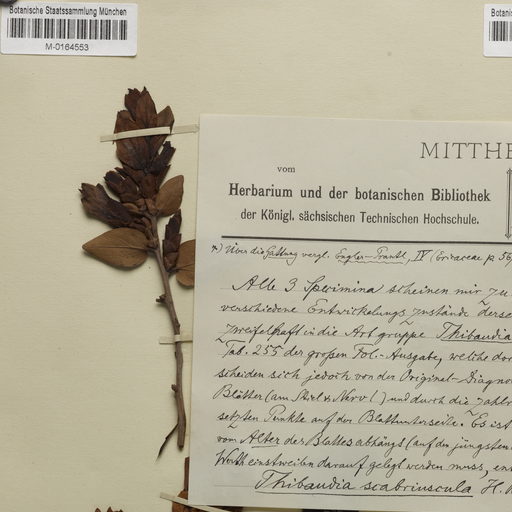 Botanische Staatssammlung München
M-0164553
Botani
MITTHE
vom
Herbarium und der botanischen Bibliothek
der Königl. sächsischen Technischen Hochschule.
*) Über die Gattung vergl. Engler-Prantl, IV (Ericaceae p. 56
Alle 3 Specimina scheinen mir zu
verschiedene Entwickelungszustände derse
zweifelhaft in die Artgruppe Thibaudia
Tab. 255 der großen Fol.-Ausgabe, welche dor
scheiden sich jedoch von der Original-Diagno
Blätter (am Stiel & Nerv!) und durch die zahlr
setzten Punkte auf der Blattunterseite. Es ist
vom Alter des Blattes abhängt (auf den jüngsten
Werth einstweilen darauf gelegt werden muss, en
Thibaudia scabriuscula H.